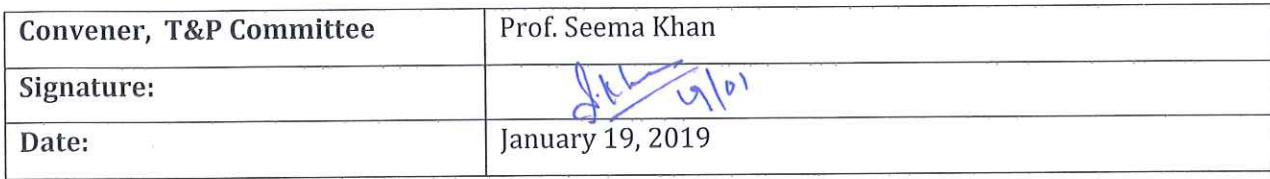 Convener, T&P Committee Prof. Seema Khan
Signature: S.Khan
19/01
Date: January 19, 2019